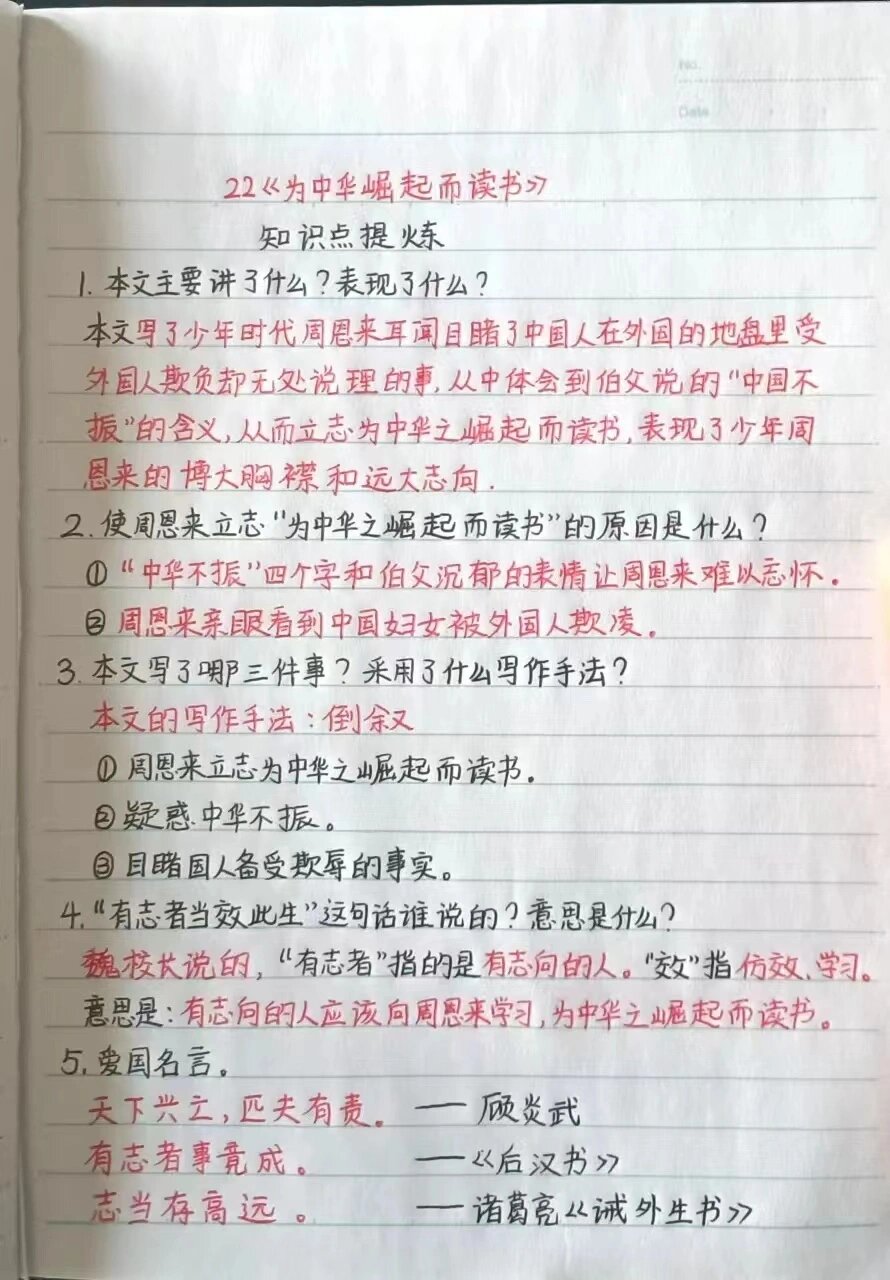 No.
Date
22《为中华崛起而读书》
知识点提炼
1. 本文主要讲了什么？表现了什么？
本文写了少年时代周恩来耳闻目睹了中国人在外国的地盘里受
外国人欺负却无处说理的事，从中体会到伯父说的“中国不
振”的含义，从而立志为中华之崛起而读书，表现了少年周
恩来的博大胸襟和远大志向.
2. 使周恩来立志“为中华之崛起而读书”的原因是什么？
①“中华不振”四个字和伯父沉郁的表情让周恩来难以忘怀。
②周恩来亲眼看到中国妇女被外国人欺凌。
3. 本文写了哪三件事？采用了什么写作手法？
本文的写作手法：倒叙
①周恩来立志为中华之崛起而读书。
②疑惑中华不振。
③目睹国人备受欺辱的事实。
4. “有志者当效此生”这句话谁说的？意思是什么？
魏校长说的，“有志者”指的是有志向的人。“效”指仿效、学习。
意思是：有志向的人应该向周恩来学习，为中华之崛起而读书。
5. 爱国名言。
天下兴亡，匹夫有责。 —— 顾炎武
有志者事竟成。 ——《后汉书》
志当存高远。 —— 诸葛亮《诫外生书》